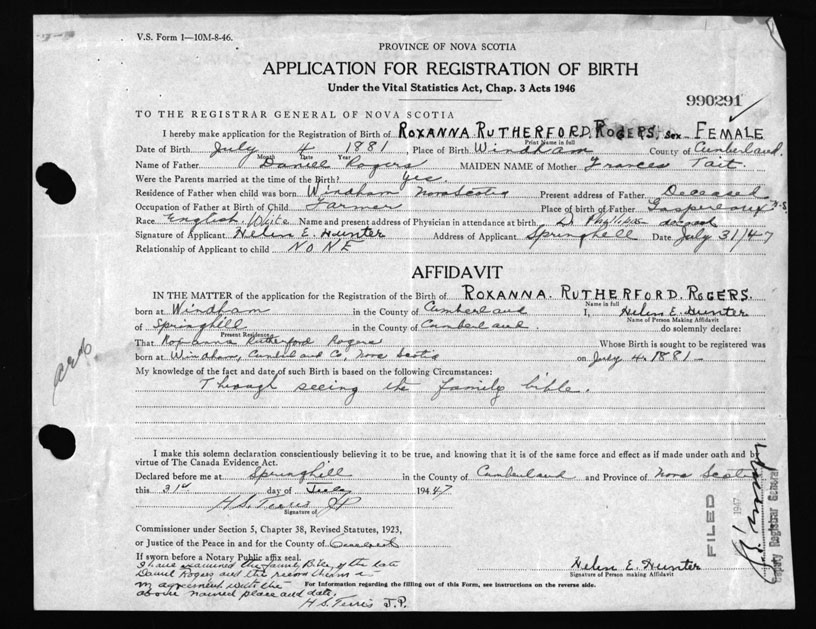 V.S. Form 1—10M-8-46.
PROVINCE OF NOVA SCOTIA
APPLICATION FOR REGISTRATION OF BIRTH
Under the Vital Statistics Act, Chap. 3 Acts 1946
990291
TO THE REGISTRAR GENERAL OF NOVA SCOTIA
I hereby make application for the Registration of Birth of ROXANNA RUTHERFORD. ROGERS. Sex FEMALE
Print Name in full
Date of Birth July 4 1881, Place of Birth Windham County of Cumberland.
Month Date Year
Name of Father Daniel Rogers MAIDEN NAME of Mother Frances Tait.
Were the Parents married at the time of the Birth? Yes.
Residence of Father when child was born Windham Nova Scotia Present address of Father Deceased
Occupation of Father at Birth of Child Farmer Place of birth of Father Gaspereaux N.S.
Race English, White Name and present address of Physician in attendance at birth Dr
Signature of Applicant Helen E. Hunter Address of Applicant Springhill Date July 31/47
Relationship of Applicant to child NONE
AFFIDAVIT
IN THE MATTER of the application for the Registration of the Birth of ROXANNA. RUTHERFORD. ROGERS.
Name in full
born at Windham in the County of Cumberland I, Helen E. Hunter
Name of Person Making Affidavit
of Springhill in the County of Cumberland. do solemnly declare:
Present Residence
That Roxanna Rutherford Rogers Whose Birth is sought to be registered was
born at Windham, Cumberland Co, Nova Scotia on July 4. 1881-
My knowledge of the fact and date of such Birth is based on the following Circumstances:
Through seeing the family bible.
I make this solemn declaration conscientiously believing it to be true, and knowing that it is of the same force and effect as if made under oath and by
virtue of The Canada Evidence Act.
Declared before me at Springhill in the County of Cumberland and Province of Nova Scotia
this 31st day of July 1947
H S. Terris JP
Signature of
Commissioner under Section 5, Chapter 38, Revised Statutes, 1923,
or Justice of the Peace in and for the County of
If sworn before a Notary Public affix seal.
I have examined the family Bible of the late
Daniel Rogers and the record therein is
in agreement with the
above named place and date,
H S. Terris J.P.
For Information regarding the filling out of this Form, see instructions on the reverse side.
Helen E. Hunter
Signature of Person making Affidavit
FILED
1947
Deputy Registrar General